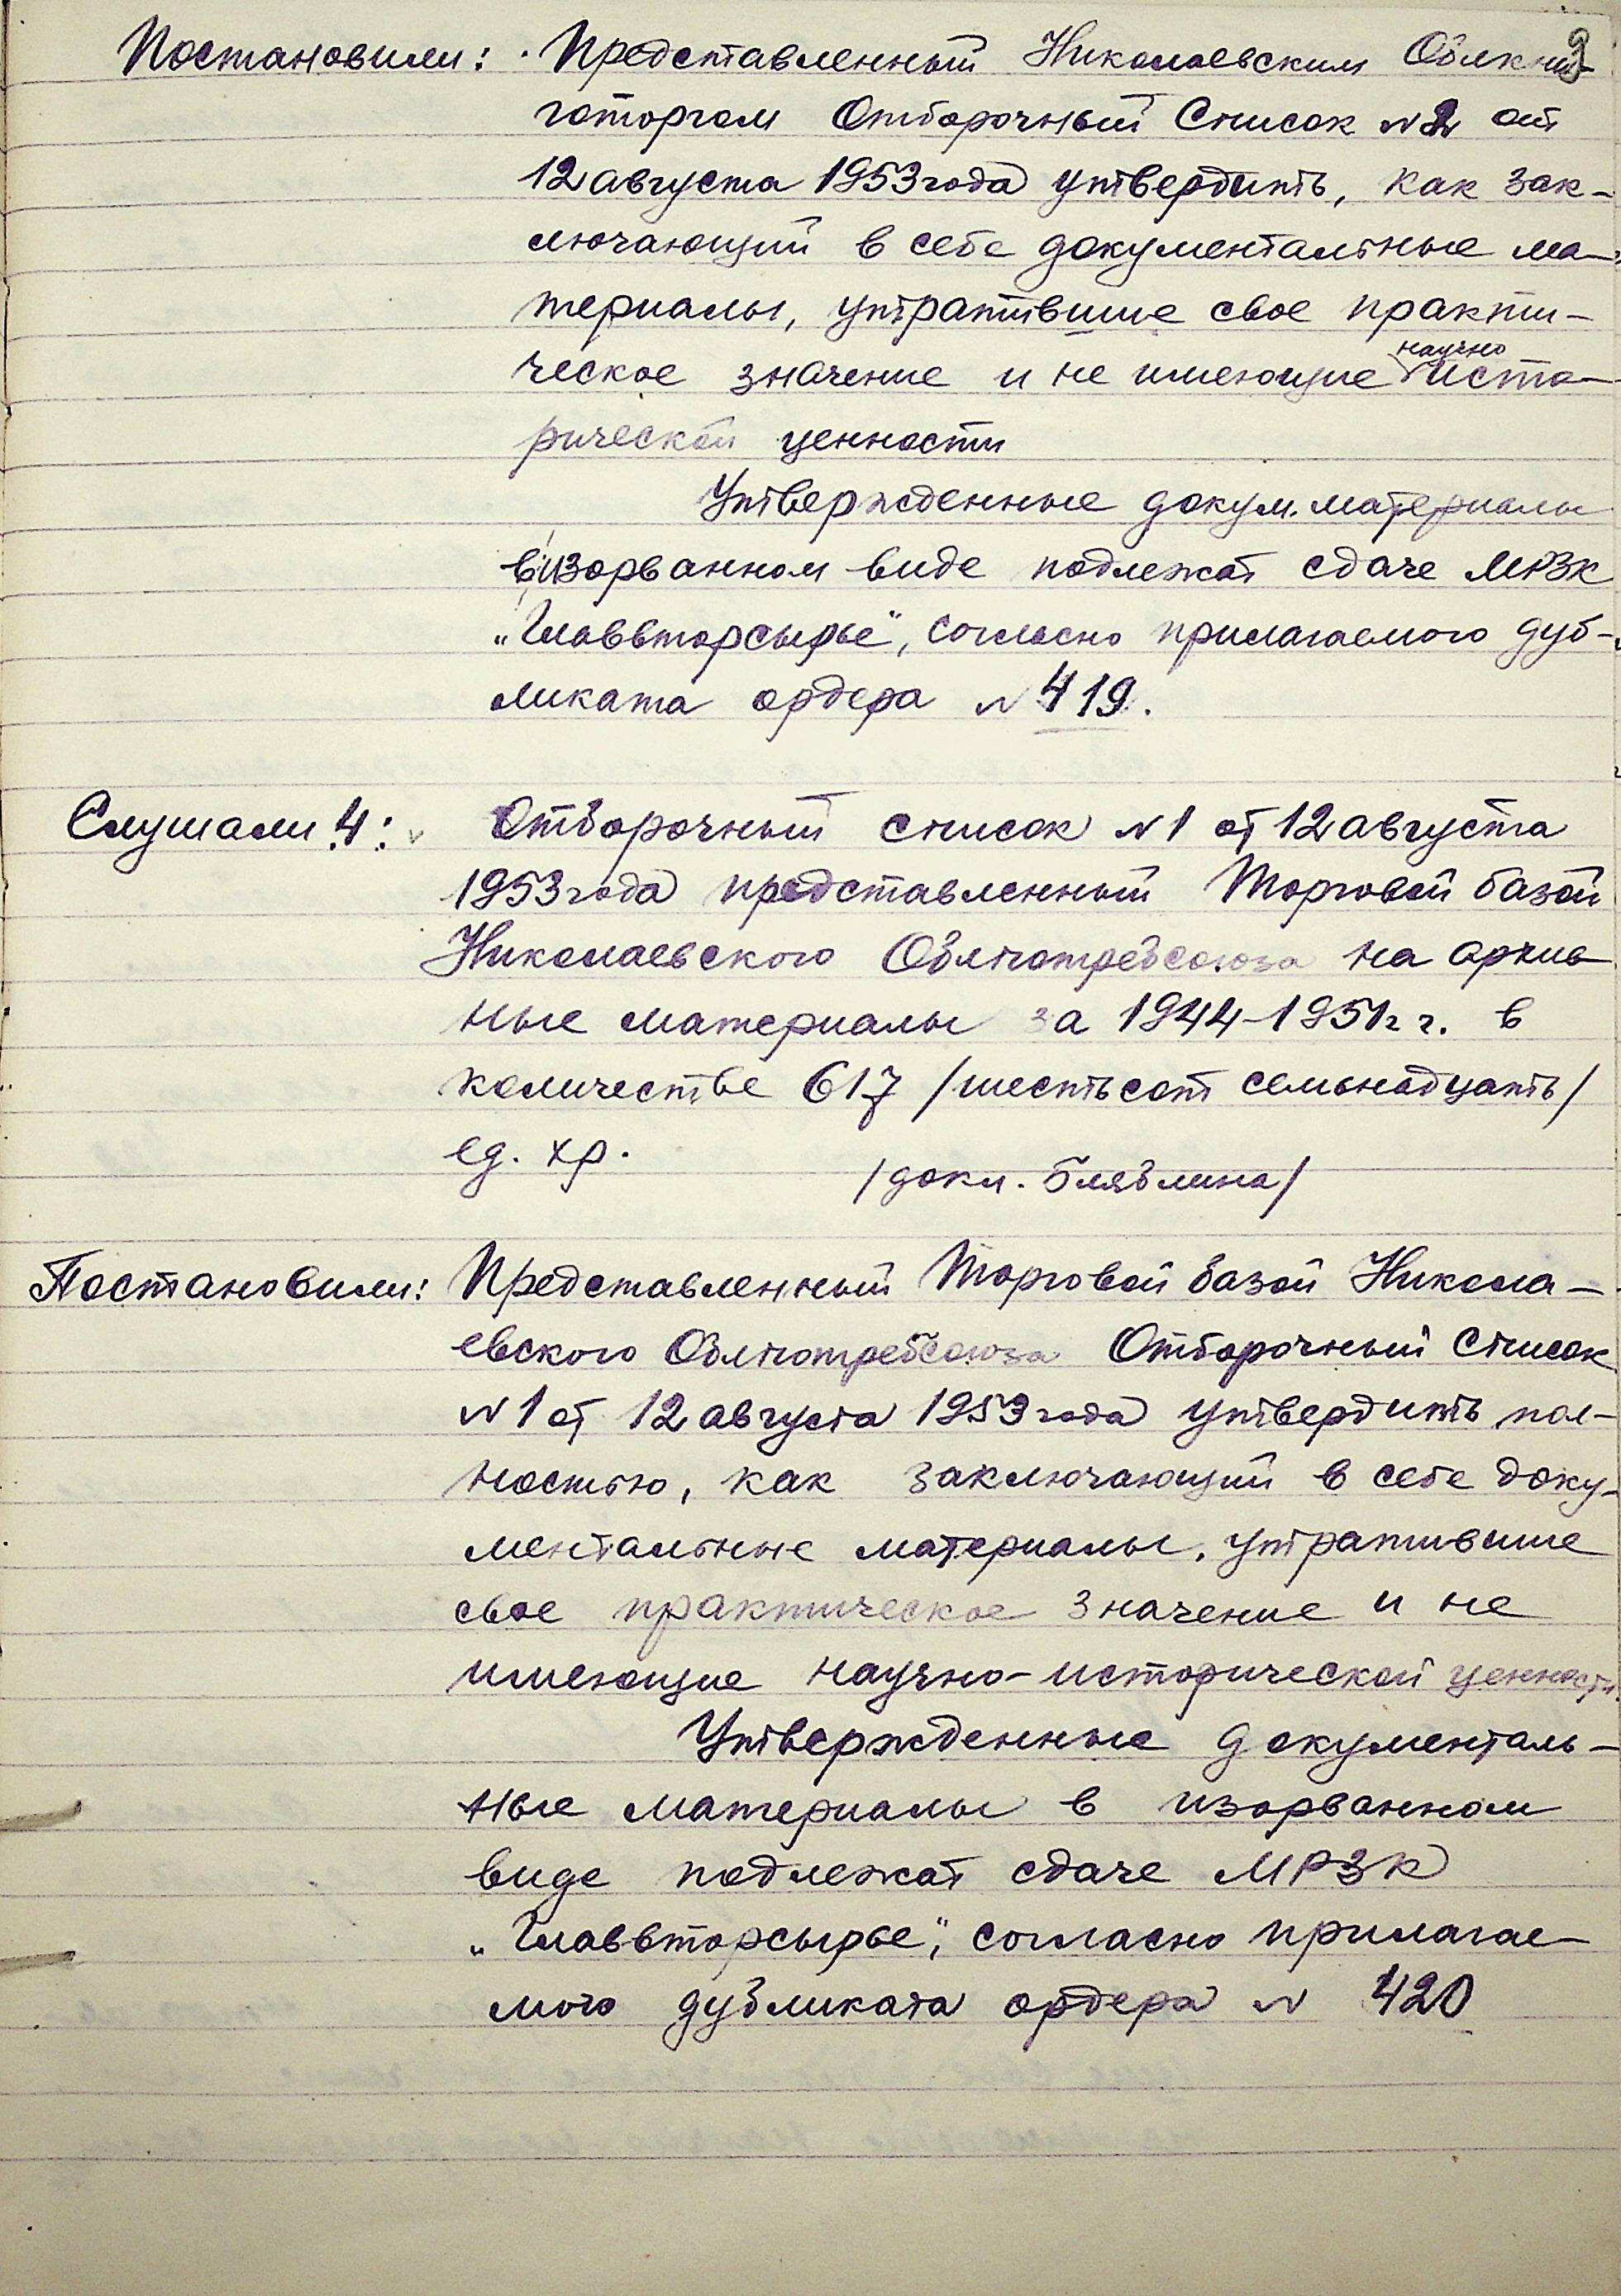 3
Постановили: Представленный Николаевским Облкни-
готоргом Отборочный Список №2 от
12 августа 1953 года утвердить, как зак-
лючающий в себе документальные ма-
териалы, утратившие свое практи-
ческое значение и не имеющие научно исто-
рической ценности
Утвержденные докум. материалы
в изорванном виде подлежат сдаче МРЗК
„Главвторсырье", согласно прилагаемого дуб-
ликата ордера №419.
Слушали 4: Отборочный список №1 от 12 августа
1953 года представленный Торговой базой
Николаевского Облпотребсоюза на архив
ные материалы за 1944-1951г г. в
количестве 617 /шестьсот семьнадцать/
ед. хр.
/докл. Блявлина/
Постановили: Представленный Торговой базой Никола-
евского Облпотребсоюза Отборочный Список
№1 от 12 августа 1953 года утвердить пол-
ностью, как заключающий в себе доку-
ментальные материалы, утратившие
свое практическое значение и не
имеющие научно-исторической ценности.
Утвержденные документаль-
ные материалы в изорванном
виде подлежат сдаче МРЗК
„Главвторсырье", согласно прилагае-
мого дубликата ордера № 420